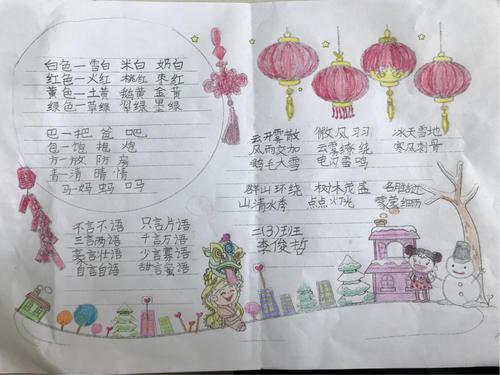 白色—雪白 米白 奶白
红色—火红 桃红 枣红
黄色—土黄 鹅黄 金黄
绿色—草绿 翠绿 墨绿
巴—把 爸 吧
包—饱 抱 炮
方—放 防 房
青—清 晴 情
马—妈 蚂 吗
不言不语 只言片语
三言两语 千言万语
豪言壮语 少言寡语
自言自语 甜言蜜语
云开雾散 微风习习 冰天雪地
风雨交加 云雾缭绕 寒风刺骨
鹅毛大雪 电闪雷鸣
群山环绕 树木茂盛 名胜古迹
山清水秀 点点灯光
二(3)班
李俊哲